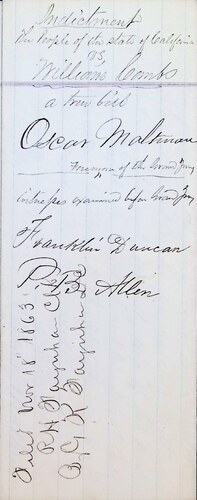 Indictment
The People of the state of California
vs.
William Combs
a true bill
Oscar Maltman
Foreman of the Grand Jury
witnesses examined before Grand Jury
Franklin Duncan
P. B. Allen
Filed Nov 18th 1863